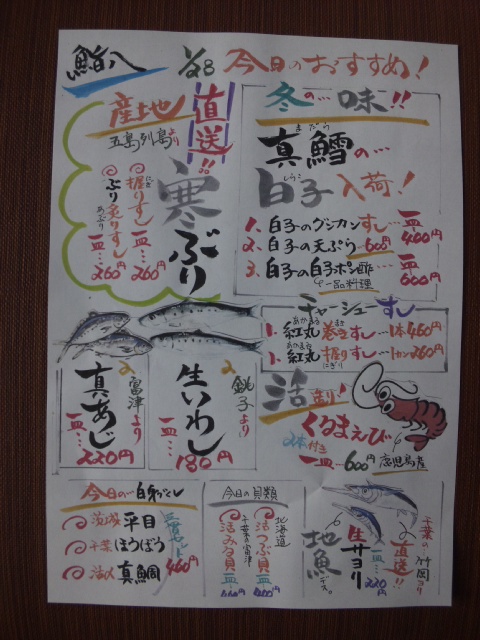 鮨八
1/28 今日のおすすめ!
産地直送!!
五島列島より
寒ぶり
握りずし
一皿…260円
ぶり炙りずし
一皿…260円
冬の…味!!
真鱈の…
白子入荷!
1. 白子のグンカンすし…一皿400円
2. 白子の天ぷら 600円
3. 白子の白子ポン酢…一皿600円
一品料理
チャーシューすし
1. 紅丸巻きすし…1本460円
1. 紅丸握りすし…1カン260円
富津より
真あじ
一皿…220円
銚子より
生いわし
一皿…180円
活造り!
くるまえび
2本付き
一皿…600円
鹿児島産
今日の
茨城 平目
千葉 ほうぼう
活〆 真鯛
460円
今日の貝類
北海道
活つぶ貝
一皿400円
千葉の富津
活みる貝
一皿460円
千葉の竹岡より
直送!!
生サヨリ
一皿…220円
地魚デス。